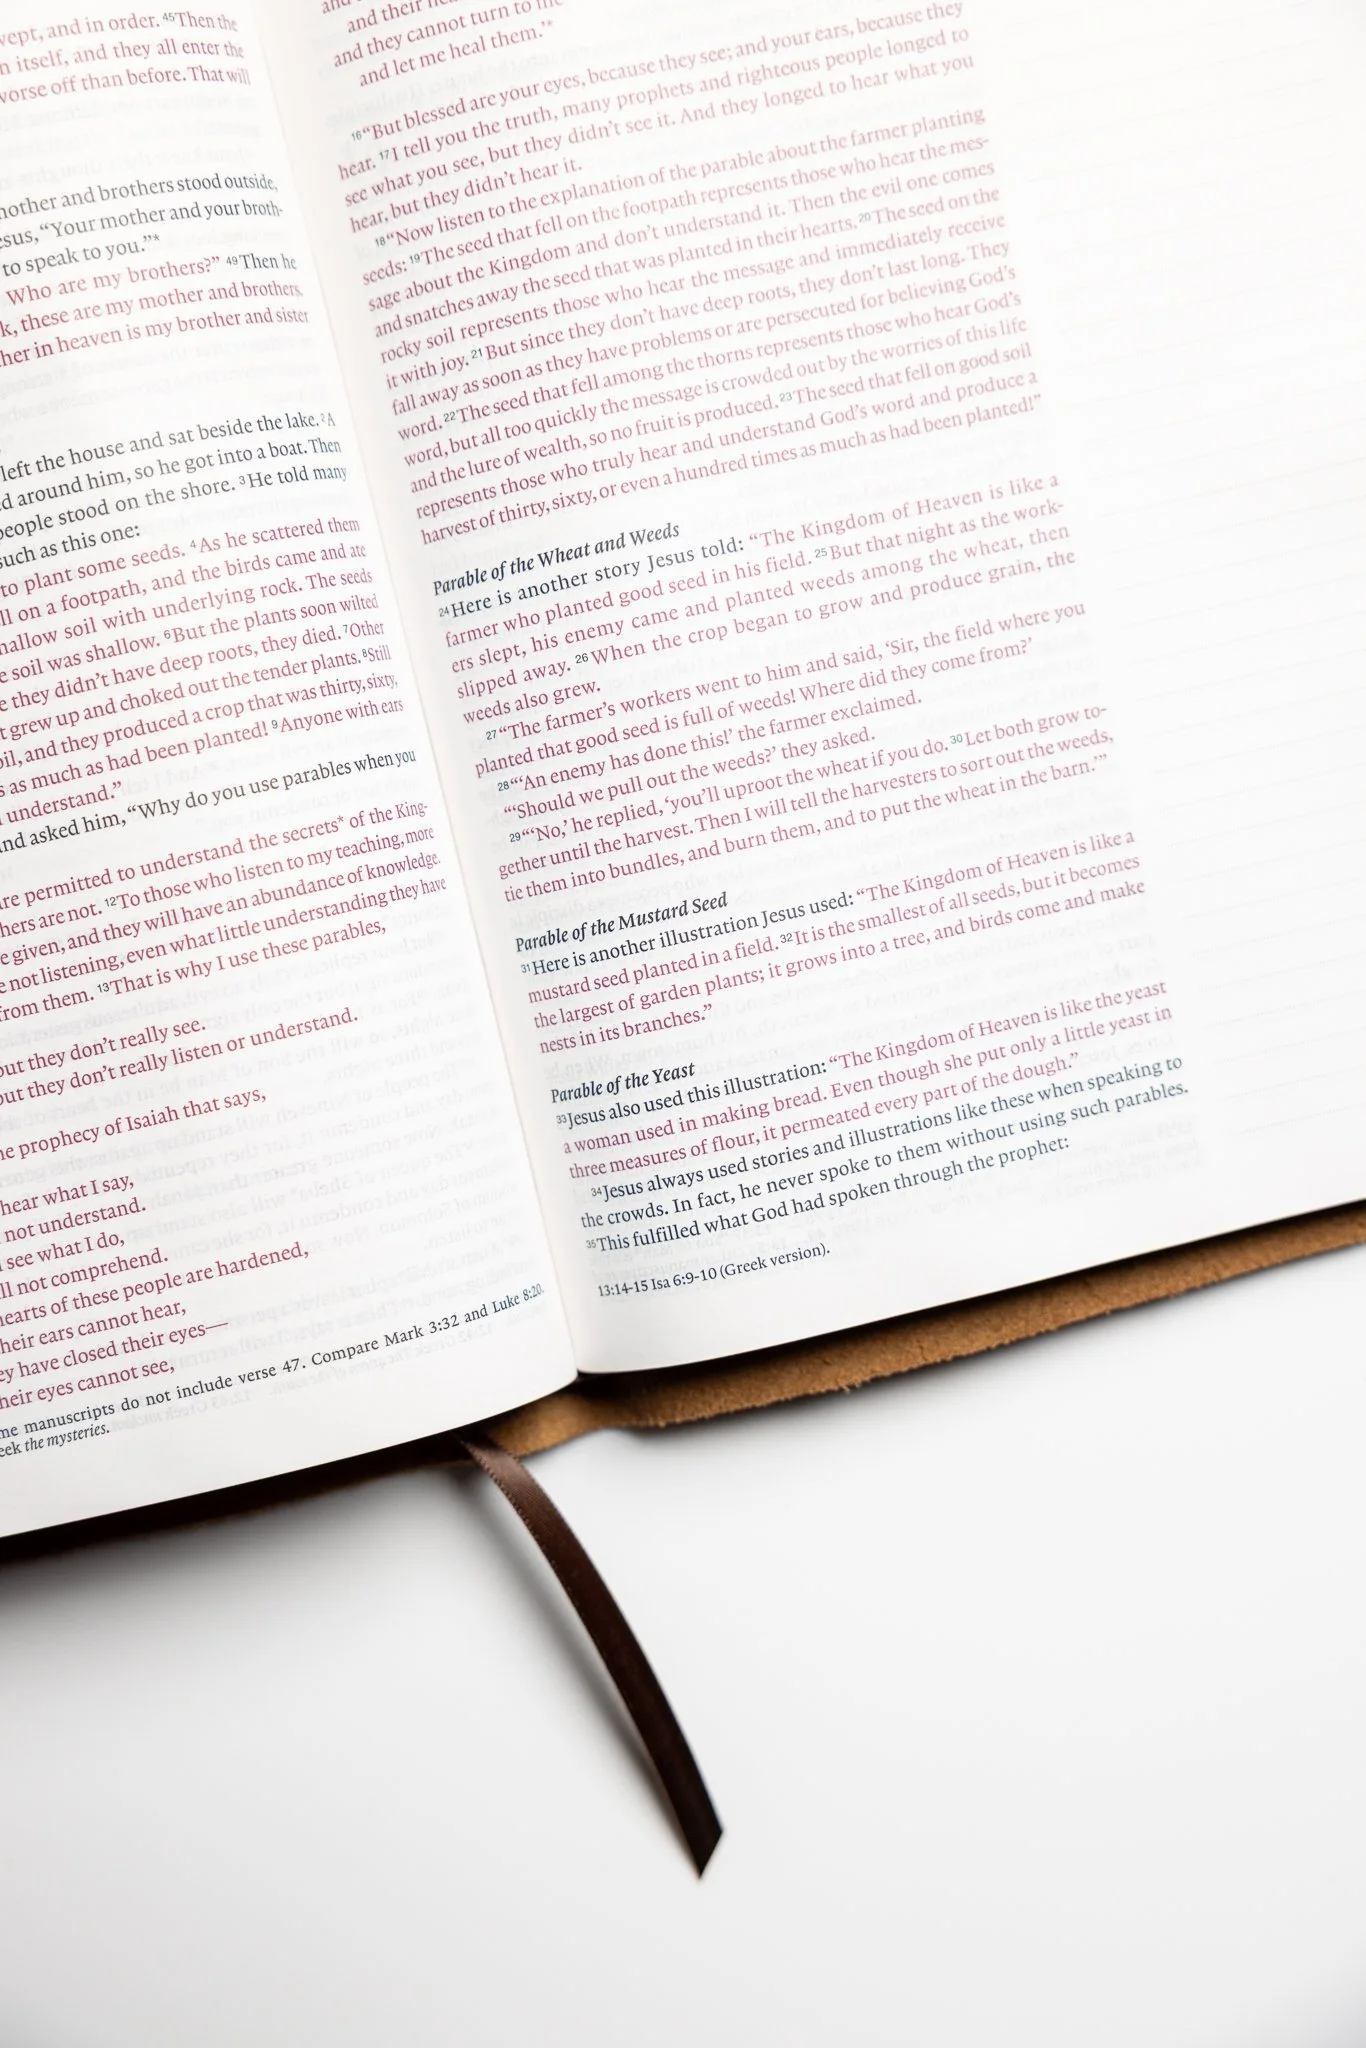 vept, and in order. 45Then the
n itself, and they all enter the
vorse off than before. That will
nother and brothers stood outside,
esus, “Your mother and your broth-
to speak to you.”*
Who are my brothers?” 49Then he
k, these are my mother and brothers.
her in heaven is my brother and sister
left the house and sat beside the lake. 2A
d around him, so he got into a boat. Then
people stood on the shore. 3He told many
such as this one:
to plant some seeds. 4As he scattered them
ll on a footpath, and the birds came and ate
hallow soil with underlying rock. The seeds
e soil was shallow. 6But the plants soon wilted
e they didn’t have deep roots, they died. 7Other
t grew up and choked out the tender plants. 8Still
oil, and they produced a crop that was thirty, sixty,
s as much as had been planted! 9Anyone with ears
understand.”
nd asked him, “Why do you use parables when you
re permitted to understand the secrets* of the King-
hers are not. 12To those who listen to my teaching, more
e given, and they will have an abundance of knowledge.
e not listening, even what little understanding they have
from them. 13That is why I use these parables,
but they don’t really see.
but they don’t really listen or understand.
he prophecy of Isaiah that says,
hear what I say,
not understand.
see what I do,
ll not comprehend.
hearts of these people are hardened,
heir ears cannot hear,
ey have closed their eyes—
heir eyes cannot see,
me manuscripts do not include verse 47. Compare Mark 3:32 and Luke 8:20.
eek the mysteries.
and their
and they cannot turn to me
and let me heal them.’*
16“But blessed are your eyes, because they see; and your ears, because they
hear. 17I tell you the truth, many prophets and righteous people longed to
see what you see, but they didn’t see it. And they longed to hear what you
hear, but they didn’t hear it.
18“Now listen to the explanation of the parable about the farmer planting
seeds: 19The seed that fell on the footpath represents those who hear the mes-
sage about the Kingdom and don’t understand it. Then the evil one comes
and snatches away the seed that was planted in their hearts. 20The seed on the
rocky soil represents those who hear the message and immediately receive
it with joy. 21But since they don’t have deep roots, they don’t last long. They
fall away as soon as they have problems or are persecuted for believing God’s
word. 22The seed that fell among the thorns represents those who hear God’s
word, but all too quickly the message is crowded out by the worries of this life
and the lure of wealth, so no fruit is produced. 23The seed that fell on good soil
represents those who truly hear and understand God’s word and produce a
harvest of thirty, sixty, or even a hundred times as much as had been planted!”
Parable of the Wheat and Weeds
24Here is another story Jesus told: “The Kingdom of Heaven is like a
farmer who planted good seed in his field. 25But that night as the work-
ers slept, his enemy came and planted weeds among the wheat, then
slipped away. 26When the crop began to grow and produce grain, the
weeds also grew.
27“The farmer’s workers went to him and said, ‘Sir, the field where you
planted that good seed is full of weeds! Where did they come from?’
28“‘An enemy has done this!’ the farmer exclaimed.
“‘Should we pull out the weeds?’ they asked.
29“‘No,’ he replied, ‘you’ll uproot the wheat if you do. 30Let both grow to-
gether until the harvest. Then I will tell the harvesters to sort out the weeds,
tie them into bundles, and burn them, and to put the wheat in the barn.’”
Parable of the Mustard Seed
31Here is another illustration Jesus used: “The Kingdom of Heaven is like a
mustard seed planted in a field. 32It is the smallest of all seeds, but it becomes
the largest of garden plants; it grows into a tree, and birds come and make
nests in its branches.”
Parable of the Yeast
33Jesus also used this illustration: “The Kingdom of Heaven is like the yeast
a woman used in making bread. Even though she put only a little yeast in
three measures of flour, it permeated every part of the dough.”
34Jesus always used stories and illustrations like these when speaking to
the crowds. In fact, he never spoke to them without using such parables.
35This fulfilled what God had spoken through the prophet:
13:14-15 Isa 6:9-10 (Greek version).